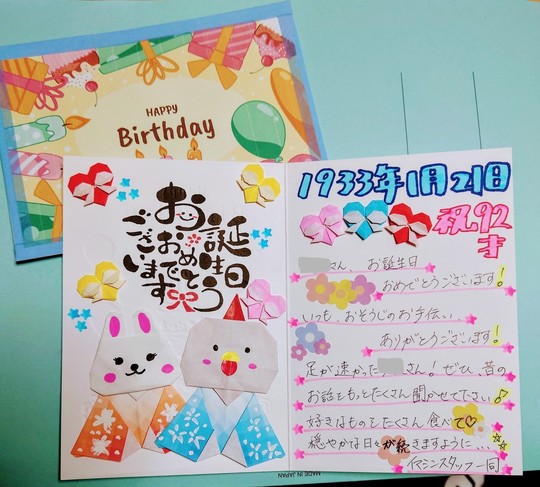 HAPPY
Birthday
お誕生日
おめでとう
ございます
1933年1月21日
祝92才
さん、お誕生日
おめでとうございます!
いつも、おそうじのお手伝い
ありがとうございます!
足が速かった さん!ぜひ、昔の
お話をもっとたくさん聞かせて下さい♪
好きなものをたくさん食べて♡
穏やかな日々が続きますように、、、
スタッフ一同
MADE IN JAPAN